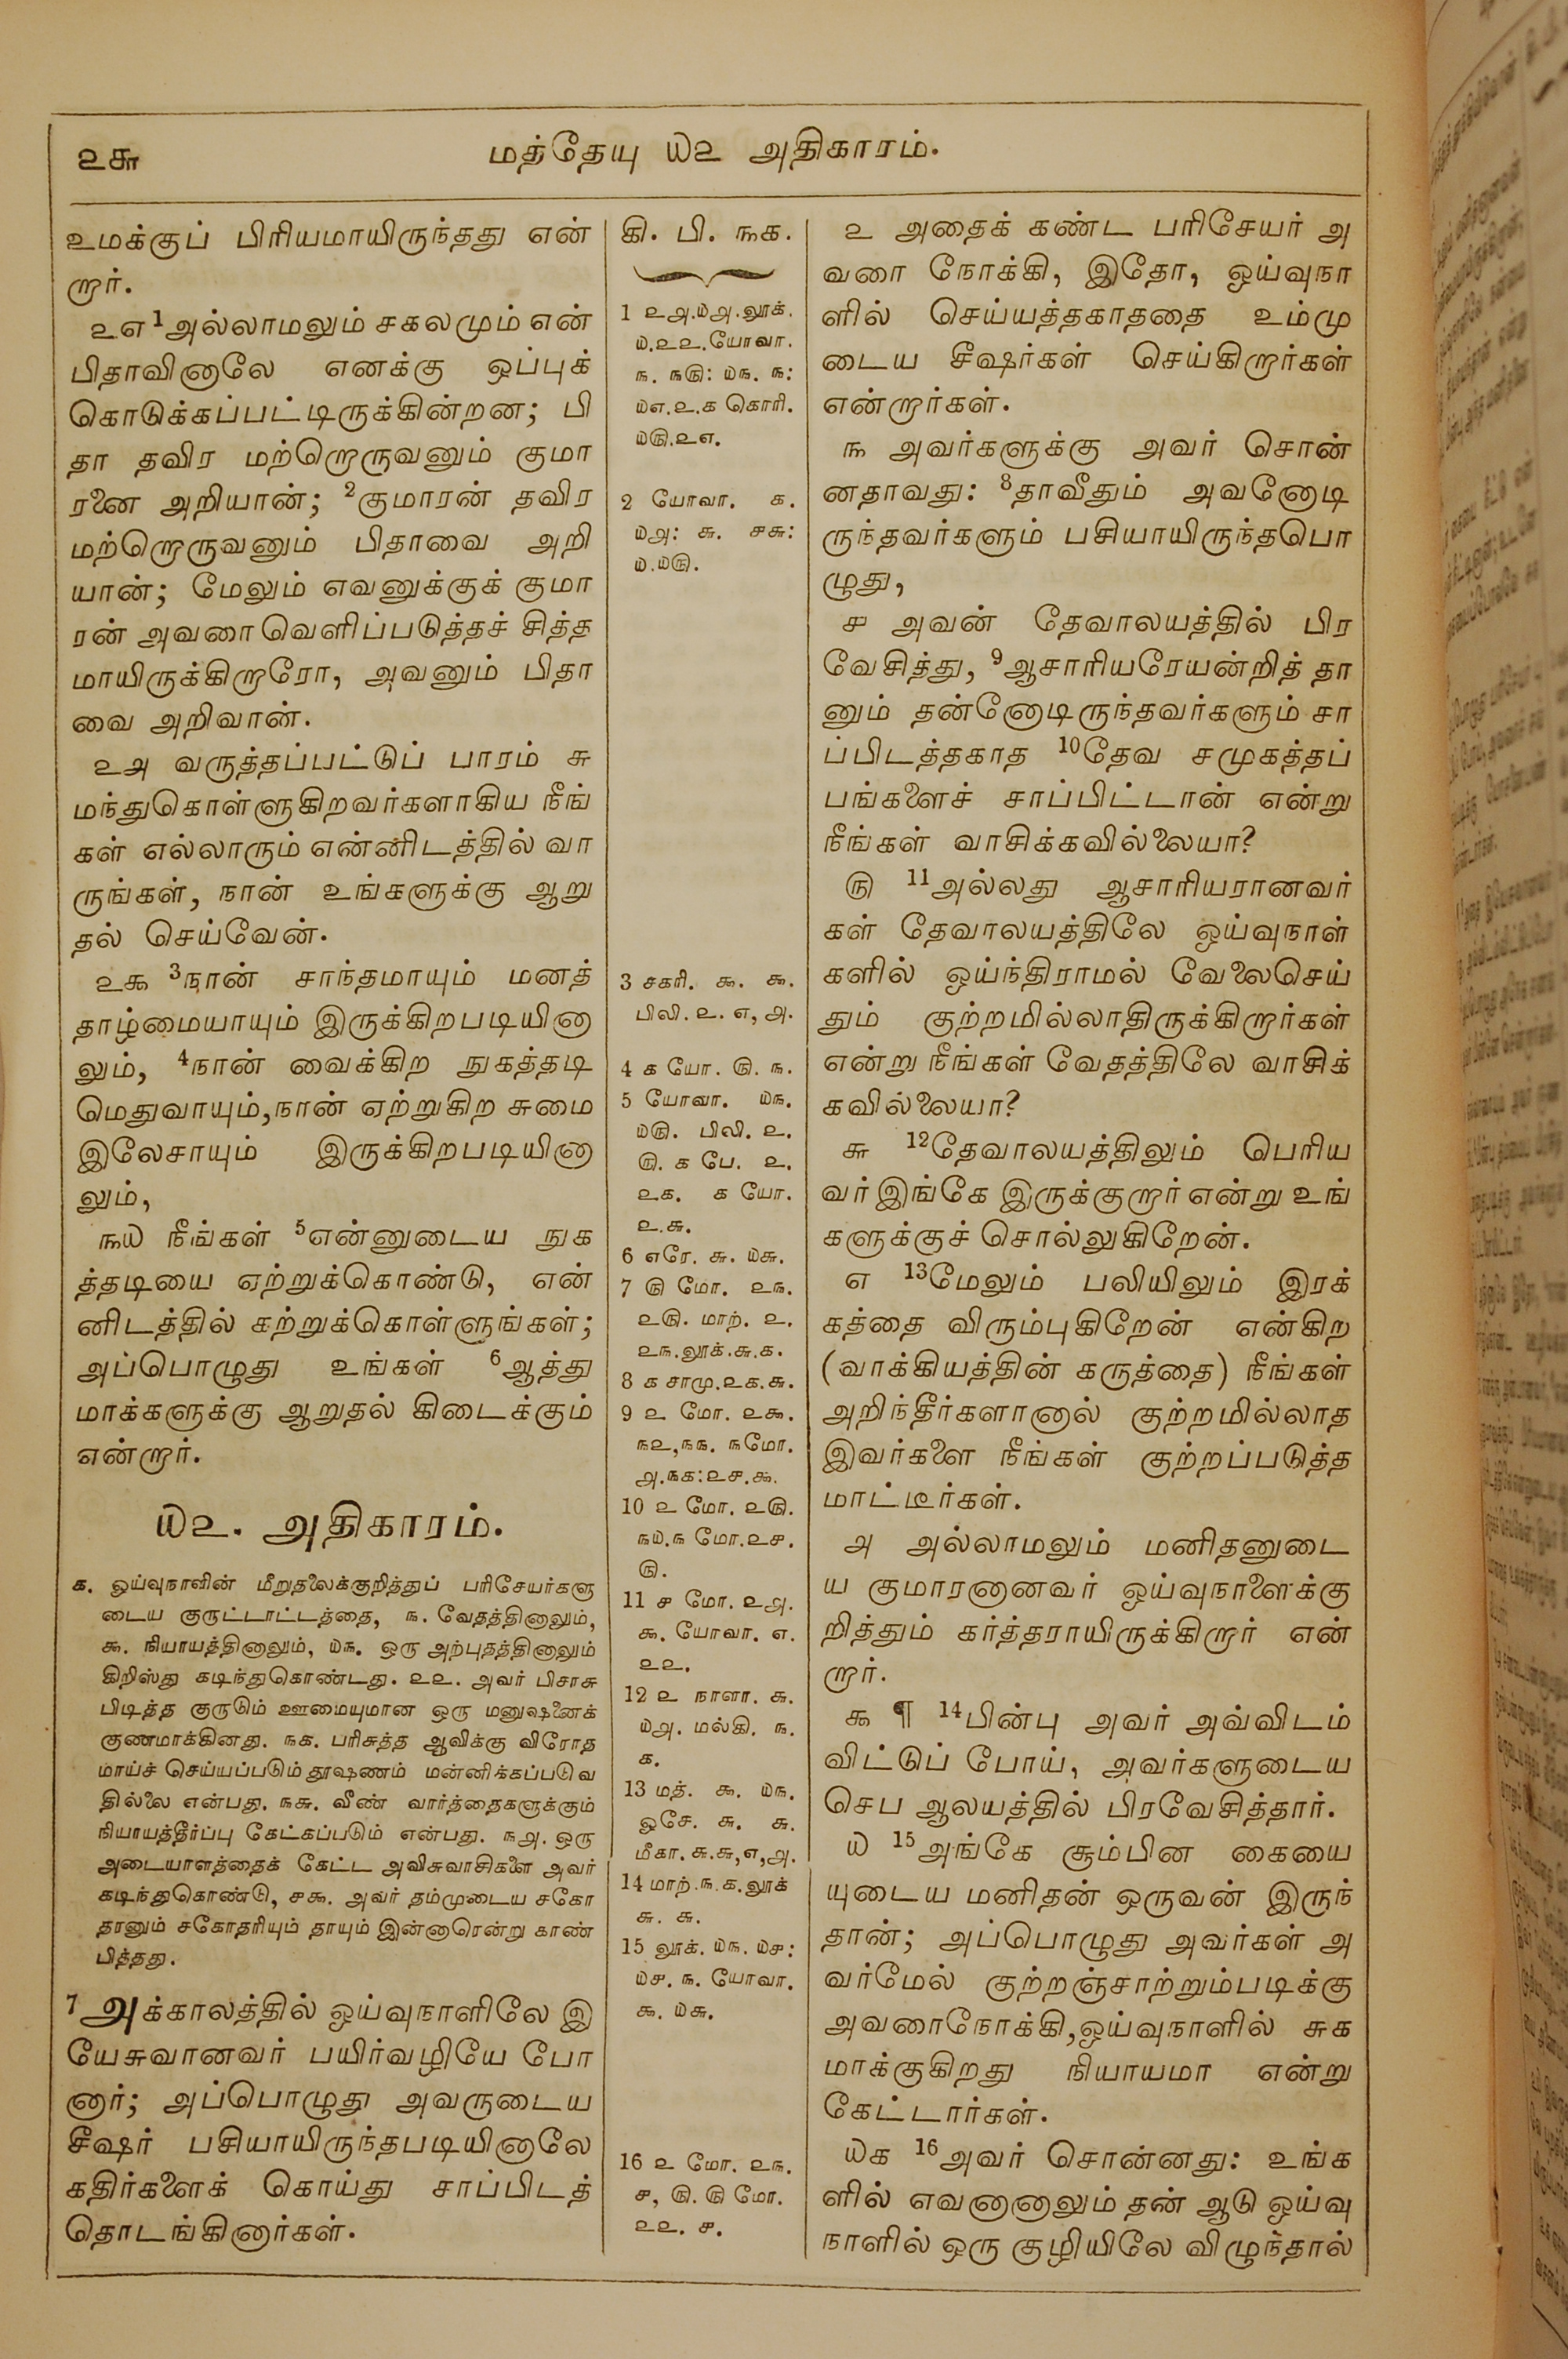 ௨௬
மத்தேயு ௰௨ அதிகாரம்.
உமக்குப் பிரியமாயிருந்தது என்
றார்.
௨௭ ¹அல்லாமலும் சகலமும் என்
பிதாவினாலே எனக்கு ஒப்புக்
கொடுக்கப்பட்டிருக்கின்றன; பி
தா தவிர மற்றொருவனும் குமா
ரனை அறியான்; ²குமாரன் தவிர
மற்றொருவனும் பிதாவை அறி
யான்; மேலும் எவனுக்குக் குமா
ரன் அவரை வெளிப்படுத்தச் சித்த
மாயிருக்கிறாரோ, அவனும் பிதா
வை அறிவான்.
௨௮ வருத்தப்பட்டுப் பாரம் சு
மந்துகொள்ளுகிறவர்களாகிய நீங்
கள் எல்லாரும் என்னிடத்தில் வா
ருங்கள், நான் உங்களுக்கு ஆறு
தல் செய்வேன்.
௨௯ ³நான் சாந்தமாயும் மனத்
தாழ்மையாயும் இருக்கிறபடியினா
லும், ⁴நான் வைக்கிற நுகத்தடி
மெதுவாயும், நான் ஏற்றுகிற சுமை
இலேசாயும் இருக்கிறபடியினா
லும்,
௩௰ நீங்கள் ⁵என்னுடைய நுக
த்தடியை ஏற்றுக்கொண்டு, என்
னிடத்தில் கற்றுக்கொள்ளுங்கள்;
அப்பொழுது உங்கள் ⁶ஆத்து
மாக்களுக்கு ஆறுதல் கிடைக்கும்
என்றார்.
௰௨. அதிகாரம்.
௧. ஓய்வுநாளின் மீறுதலைக்குறித்துப் பரிசேயர்களு
டைய குருட்டாட்டத்தை, ௩. வேதத்தினாலும்,
௯. நியாயத்தினாலும், ௰௩. ஒரு அற்புதத்தினாலும்
கிறிஸ்து கடிந்துகொண்டது. ௨௨. அவர் பிசாசு
பிடித்த குருடும் ஊமையுமான ஒரு மனுஷனைக்
குணமாக்கினது. ௩௧. பரிசுத்த ஆவிக்கு விரோத
மாய்ச் செய்யப்படும் தூஷணம் மன்னிக்கப்படுவ
தில்லை என்பது. ௩௬. வீண் வார்த்தைகளுக்கும்
நியாயத்தீர்ப்பு கேட்கப்படும் என்பது. ௩௮. ஒரு
அடையாளத்தைக் கேட்ட அவிசுவாசிகளை அவர்
கடிந்துகொண்டு, ௪௯. அவர் தம்முடைய சகோ
தரனும் சகோதரியும் தாயும் இன்னாரென்று காண்
பித்தது.
⁷அக்காலத்தில் ஓய்வுநாளிலே இ
யேசுவானவர் பயிர்வழியே போ
னார்; அப்பொழுது அவருடைய
சீஷர் பசியாயிருந்தபடியினாலே
கதிர்களைக் கொய்து சாப்பிடத்
தொடங்கினார்கள்.
கி. பி. ௩௧.
1 ௨௮.௰௮.லூக்.
௰.௨௨.யோவா.
௩. ௩௫: ௰௩. ௩:
௰௭.௨.௧ கொரி.
௰௫.௨௭.
2 யோவா. ௧.
௰௮: ௬. ௪௬:
௰.௰௫.
3 சகரி. ௯. ௯.
பிலி. ௨. ௭, ௮.
4 ௧ யோ. ௫. ௩.
5 யோவா. ௰௩.
௰௫. பிலி. ௨.
௫. ௧ பே. ௨.
௨௧. ௧ யோ.
௨.௬.
6 எரே. ௬. ௰௬.
7 ௫ மோ. ௨௩.
௨௫. மாற். ௨.
௨௩.லூக்.௬.௧.
8 ௧ சாமு.௨௧.௬.
9 ௨ மோ. ௨௯.
௩௨,௩௩. ௩மோ.
௮.௩௧:௨௪.௯.
10 ௨ மோ. ௨௫.
௩௰.௩ மோ.௨௪.
௫.
11 ௪ மோ. ௨௮.
௯. யோவா. ௭.
௨௨.
12 ௨ நாளா. ௬.
௰௮. மல்கி. ௩.
௧.
13 மத். ௯. ௰௩.
ஓசே. ௬. ௬.
மீகா. ௬.௬,௭,௮.
14 மாற்.௩.௧.லூக்
௬. ௬.
15 லூக். ௰௩. ௰௪:
௰௪. ௩. யோவா.
௯. ௰௬.
16 ௨ மோ. ௨௩.
௪, ௫. ௫ மோ.
௨௨. ௪.
௨ அதைக் கண்ட பரிசேயர் அ
வரை நோக்கி, இதோ, ஓய்வுநா
ளில் செய்யத்தகாததை உம்மு
டைய சீஷர்கள் செய்கிறார்கள்
என்றார்கள்.
௩ அவர்களுக்கு அவர் சொன்
னதாவது: ⁸தாவீதும் அவனோடி
ருந்தவர்களும் பசியாயிருந்தபொ
ழுது,
௪ அவன் தேவாலயத்தில் பிர
வேசித்து, ⁹ஆசாரியரேயன்றித் தா
னும் தன்னோடிருந்தவர்களும் சா
ப்பிடத்தகாத ¹⁰தேவ சமுகத்தப்
பங்களைச் சாப்பிட்டான் என்று
நீங்கள் வாசிக்கவில்லையா?
௫ ¹¹அல்லது ஆசாரியரானவர்
கள் தேவாலயத்திலே ஓய்வுநாள்
களில் ஓய்ந்திராமல் வேலைசெய்
தும் குற்றமில்லாதிருக்கிறார்கள்
என்று நீங்கள் வேதத்திலே வாசிக்
கவில்லையா?
௬ ¹²தேவாலயத்திலும் பெரிய
வர் இங்கே இருக்குறார் என்று உங்
களுக்குச் சொல்லுகிறேன்.
௭ ¹³மேலும் பலியிலும் இரக்
கத்தை விரும்புகிறேன் என்கிற
(வாக்கியத்தின் கருத்தை) நீங்கள்
அறிந்தீர்களானால் குற்றமில்லாத
இவர்களை நீங்கள் குற்றப்படுத்த
மாட்டீர்கள்.
௮ அல்லாமலும் மனிதனுடை
ய குமாரனானவர் ஓய்வுநாளைக்கு
றித்தும் கர்த்தராயிருக்கிறார் என்
றார்.
௯ ¶ ¹⁴பின்பு அவர் அவ்விடம்
விட்டுப் போய், அவர்களுடைய
செப ஆலயத்தில் பிரவேசித்தார்.
௰ ¹⁵அங்கே சூம்பின கையை
யுடைய மனிதன் ஒருவன் இருந்
தான்; அப்பொழுது அவர்கள் அ
வர்மேல் குற்றஞ்சாற்றும்படிக்கு
அவரைநோக்கி,ஓய்வுநாளில் சுக
மாக்குகிறது நியாயமா என்று
கேட்டார்கள்.
௰௧ ¹⁶அவர் சொன்னது: உங்க
ளில் எவனானாலும் தன் ஆடு ஓய்வு
நாளில் ஒரு குழியிலே விழுந்தால்